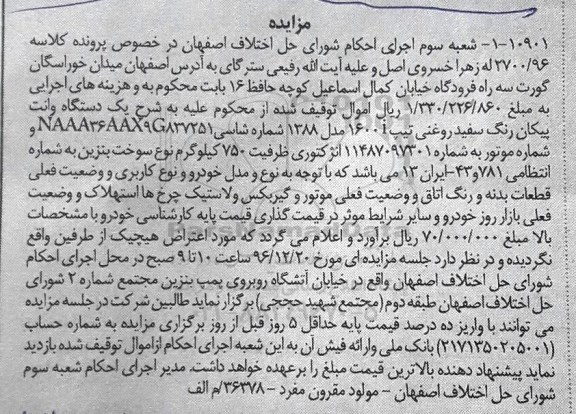 مزایده
۱-۱۰۹۰۱- شعبه سوم اجرای احکام شورای حل اختلاف اصفهان در خصوص پرونده کلاسه
۲۷۰۰/۹۶ له زهرا خسروی اصل و علیه آیت الله رفیعی سترگای به آدرس اصفهان میدان خوراسگان
گورت سه راه فرودگاه خیابان کمال اسماعیل کوچه حافظ ۱۶ بابت محکوم به و هزینه های اجرایی
به مبلغ ۱/۳۳۰/۲۲۶/۸۶۰ ریال اموال توقیف شده از محکوم علیه به شرح یک دستگاه وانت
پیکان رنگ سفید روغنی تیپ ۱۶۰۰i مدل ۱۳۸۸ شماره شاسی NAAA۳۶AAX۹G۸۳۷۲۵۱ و
شماره موتور به شماره ۱۱۴۸۷۰۹۳۳۰۱ اثر کتوری ظرفیت ۷۵۰ کیلوگرم نوع سوخت بنزین به شماره
انتظامی ۷۸۱و۴۳-ایران ۱۳ می باشد که با توجه به نوع و مدل خودرو و نوع کاربری و وضعیت فعلی
قطعات بدنه و رنگ اتاق و وضعیت فعلی موتور و گیربکس ولاستیک چرخ ها استهلاک و وضعیت
فعلی بازار روز خودرو و سایر شرایط موثر در قیمت گذاری قیمت پایه کارشناسی خودرو با مشخصات
بالا مبلغ ۷۰/۰۰۰/۰۰۰ ریال برآورد و اعلام می گردد که مورد اعتراض هیچیک از طرفین واقع
نگردیده و در نظر دارد جلسه مزایده ای مورخ ۹۶/۱۲/۲۰ ساعت ۱۰ تا ۹ صبح در محل اجرای احکام
شورای حل اختلاف اصفهان واقع در خیابان آتشگاه روبروی پمپ بنزین مجتمع شماره ۲ شورای
حل اختلاف اصفهان طبقه دوم (مجتمع شهید حججی) برگزار نماید طالبین شرکت در جلسه مزایده
می توانند با واریز ده درصد قیمت پایه حداقل ۵ روز قبل از روز برگزاری مزایده به شماره حساب
(۲۱۷۱۳۵۰۲۰۵۰۰۱) بانک ملی وارائه فیش آن به این شعبه اجرای احکام ازاموال توقیف شده بازدید
نماید پیشنهاد دهنده بالاترین قیمت مبلغ را برعهده خواهد داشت. مدیر اجرای احکام شعبه سوم
شورای حل اختلاف اصفهان - مولود مقرون مفرد - ۳۶۳۷۸/م الف